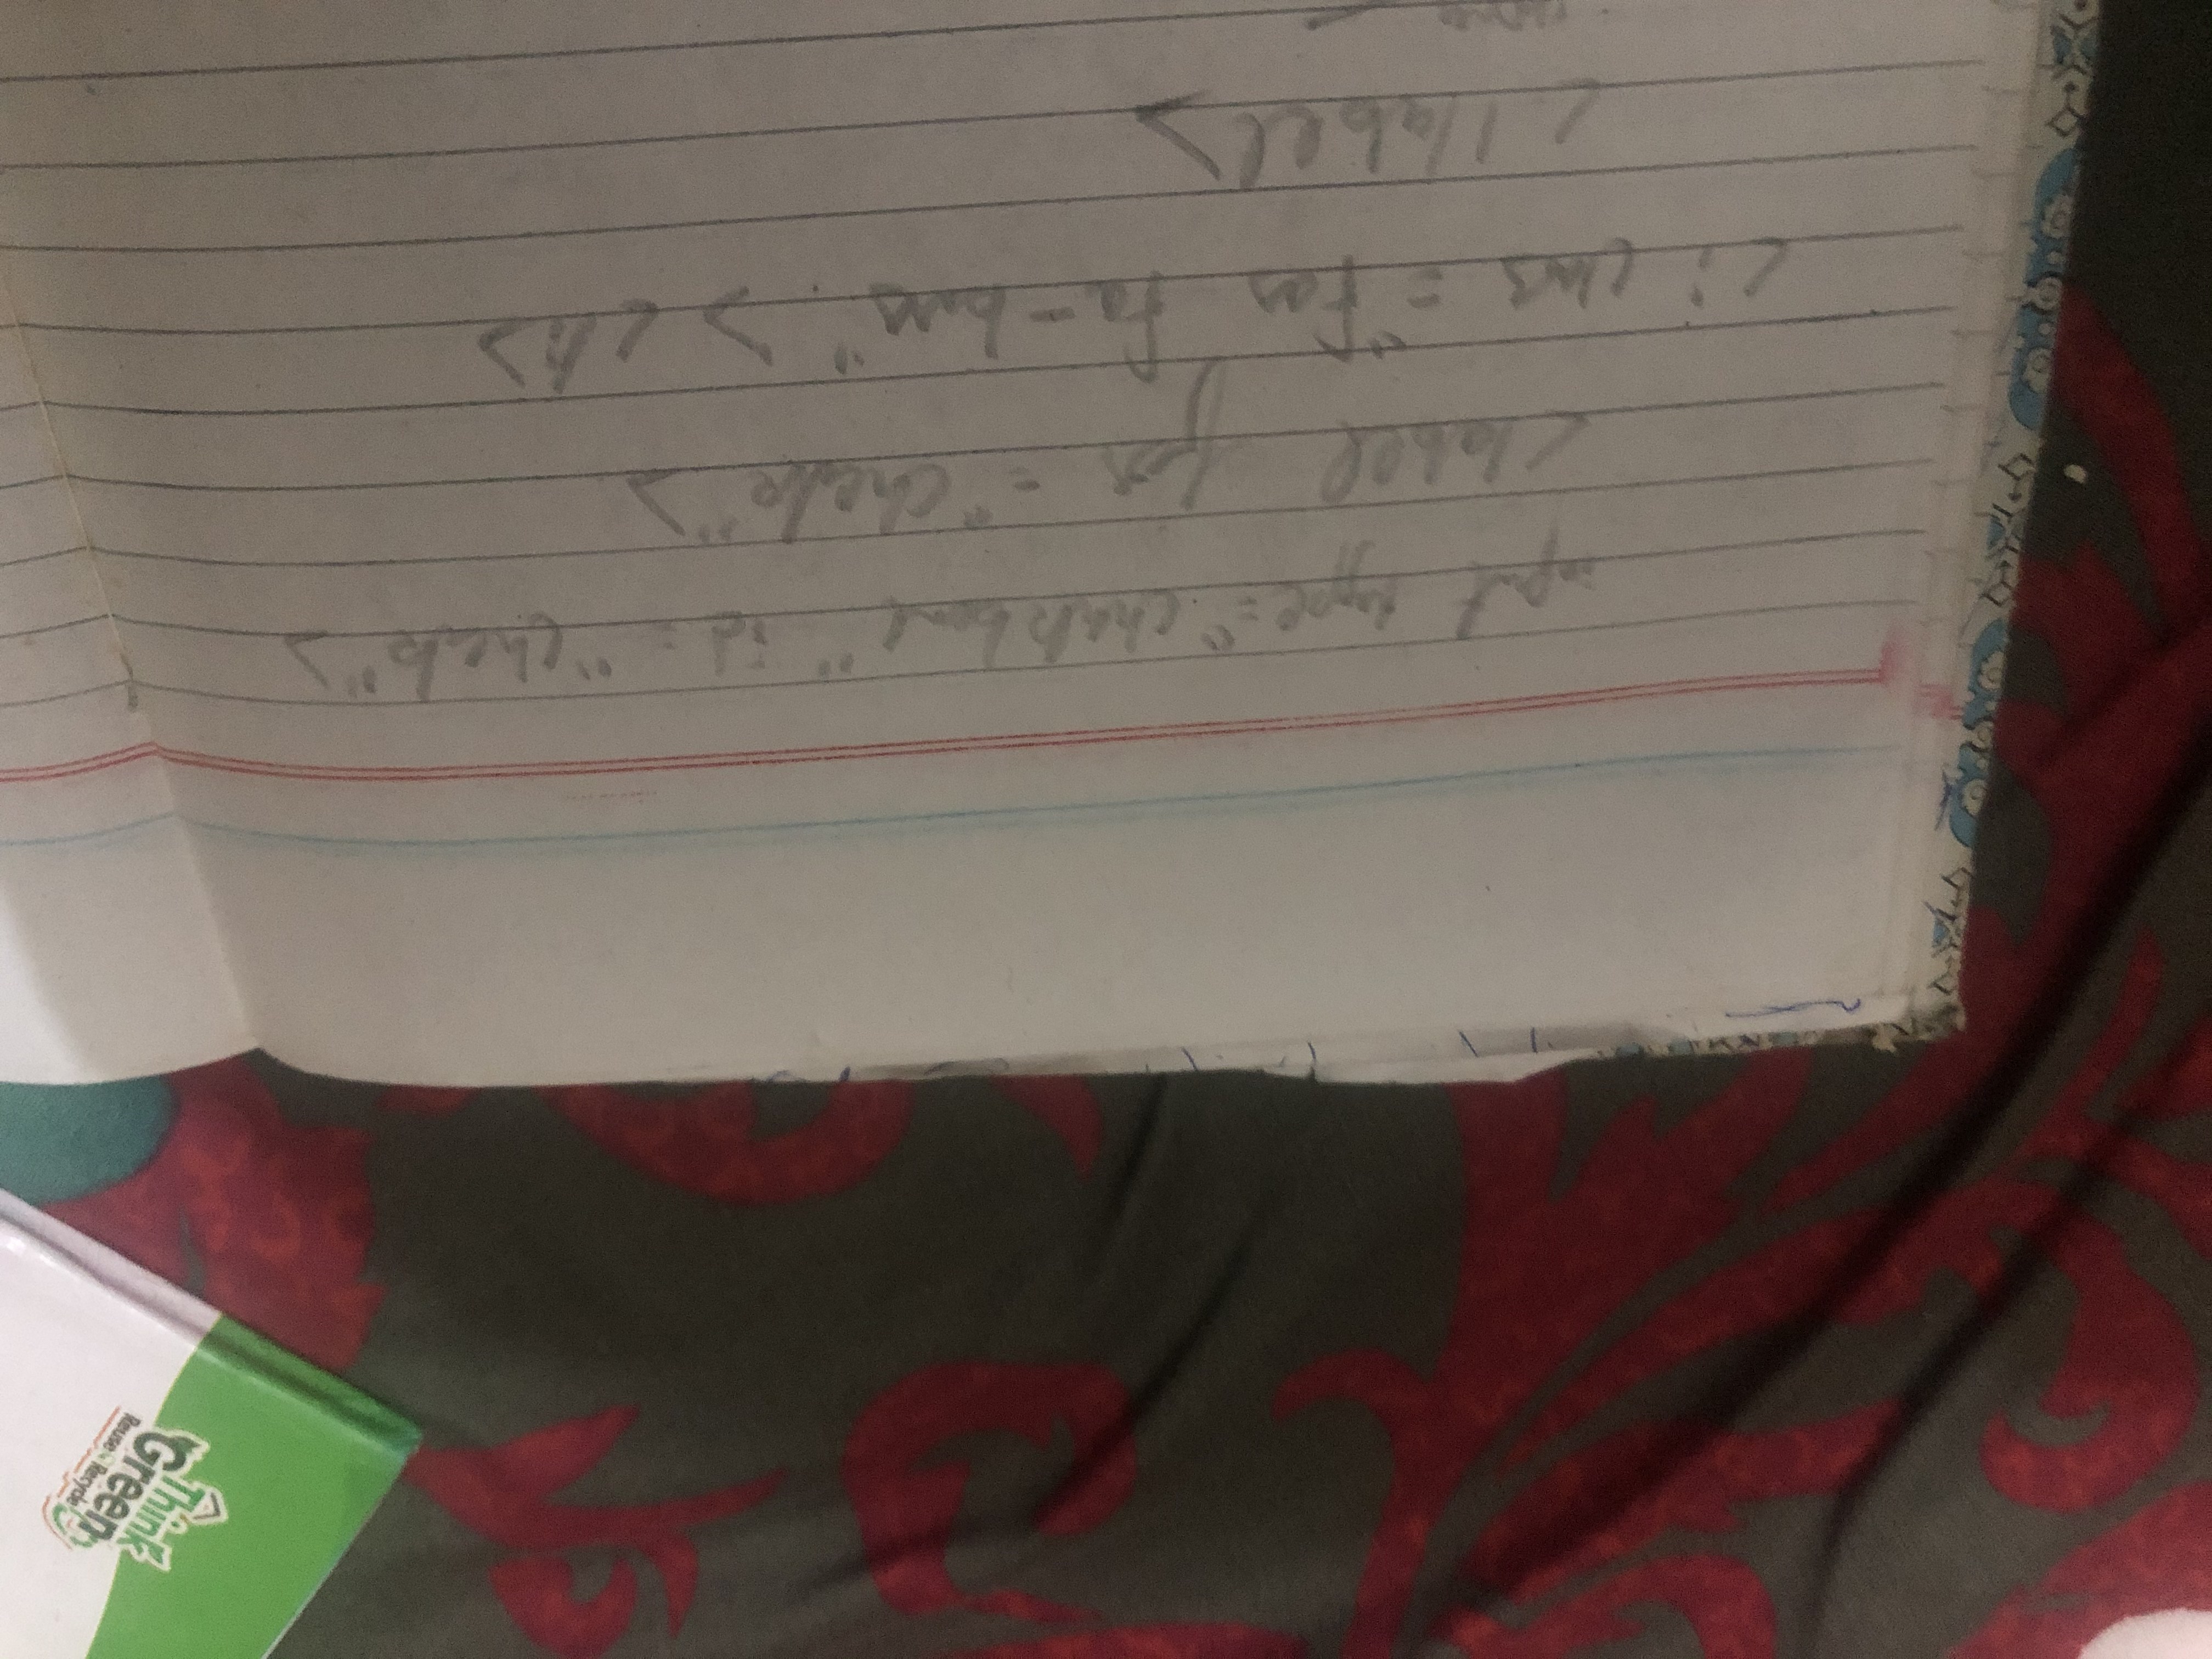 Think
Green
Reuse Recycle
input type = "checkbox" id = "check">
<label for = "check">
<i class = "fas fa-bars"> </i>
</label>